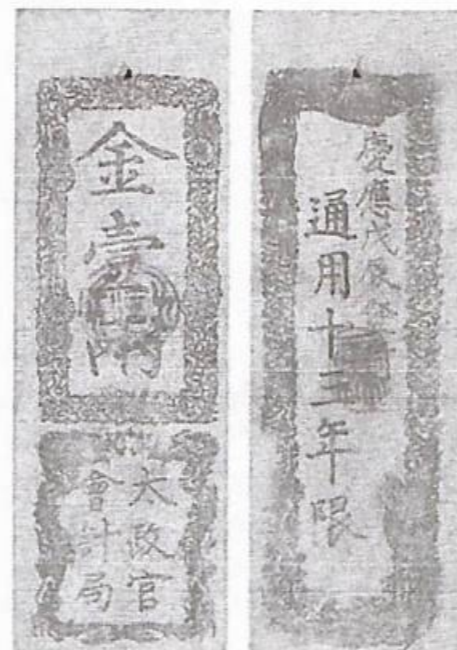 金壹兩
太政官
會計局
慶應戊辰
通用十三年限